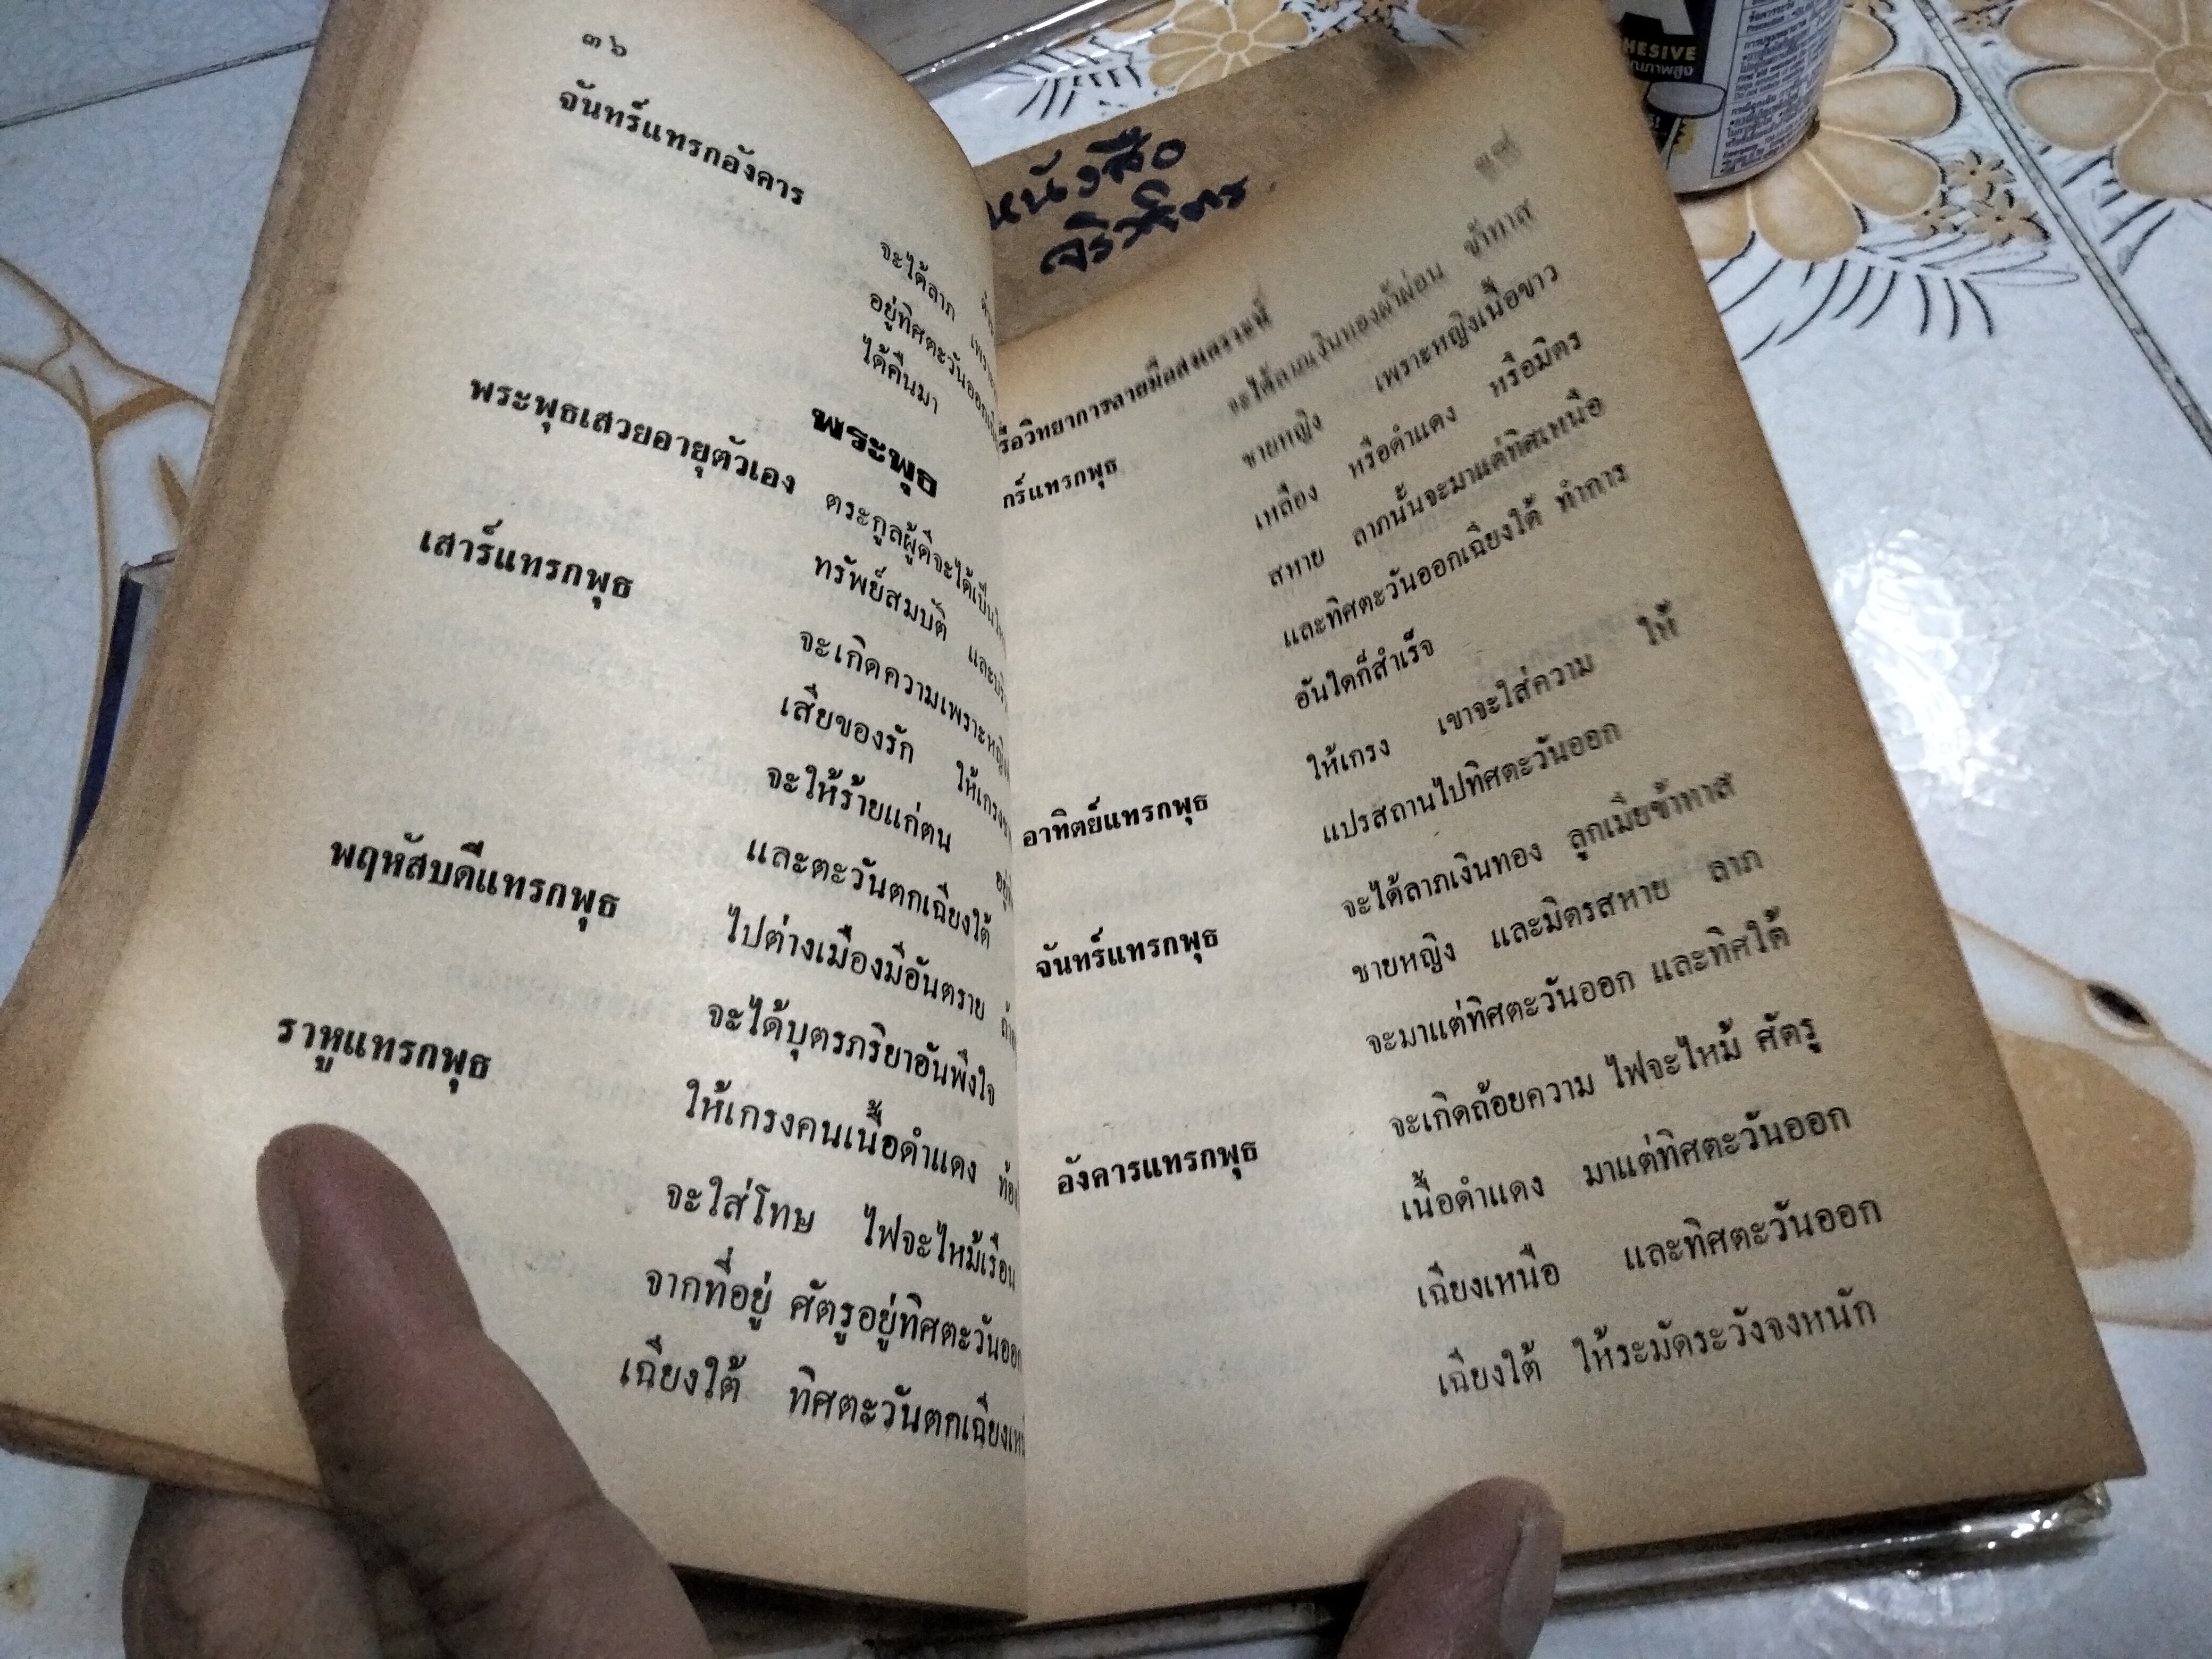 ๓๖
จันทร์แทรกอังคาร
จะได้ลาภ
อยู่ทิศตะวันออก
ได้คืนมา
พระพุธ
พระพุธเสวยอายุตัวเอง ตระกูลผู้ดีจะได้เป็น
ทรัพย์สมบัติ
เสาร์แทรกพุธ จะเกิดความเพราะหญิง
เสียของรัก ให้เกรง
จะให้ร้ายแก่ตน
และตะวันตกเฉียงใต้
พฤหัสบดีแทรกพุธ ไปต่างเมืองมีอันตราย
จะได้บุตรภริยาอันพึงใจ
ราหูแทรกพุธ ให้เกรงคนเนื้อดำแดง
จะใส่โทษ ไฟจะไหม้เรือน
จากที่อยู่ ศัตรูอยู่ทิศตะวันออก
เฉียงใต้ ทิศตะวันตกเฉียง
หนังสือ
วิทยาการลายมือสงเคราะห์
แทรกพุธ จะได้ลาภเงินทองผ้าผ่อน ข้าทาส
ชายหญิง เพราะหญิงเนื้อขาว
เหลือง หรือดำแดง หรือมิตร
สหาย ลาภนั้นจะมาแต่ทิศเหนือ
และทิศตะวันออกเฉียงใต้ ทำการ
อันใดก็สำเร็จ
อาทิตย์แทรกพุธ ให้เกรง เขาจะใส่ความ ให้
แปรสถานไปทิศตะวันออก
จันทร์แทรกพุธ จะได้ลาภเงินทอง ลูกเมียข้าทาส
ชายหญิง และมิตรสหาย ลาภ
จะมาแต่ทิศตะวันออก และทิศใต้
อังคารแทรกพุธ จะเกิดถ้อยความ ไฟจะไหม้ ศัตรู
เนื้อดำแดง มาแต่ทิศตะวันออก
เฉียงเหนือ และทิศตะวันออก
เฉียงใต้ ให้ระมัดระวังจงหนัก
HESIVE
คุณภาพสูง